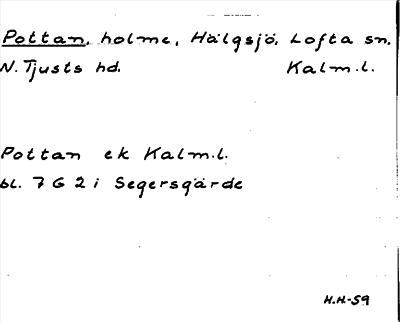 Pottan, holme, Hälgsjö, Lofta sn.
N. Tjusts hd. Kalm.l.
Pottan ek Kalm.l.
bl. 7 G 2 i Segersgärde
H.H-59